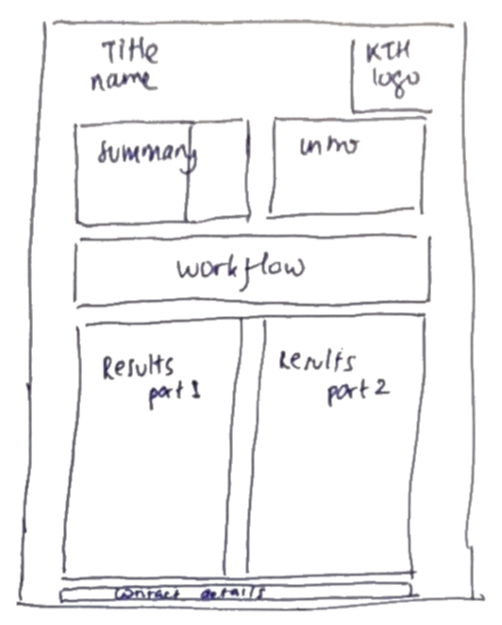 Title
name
KTH
logo
summary
intro
workflow
Results
part 1
Results
part 2
contact details